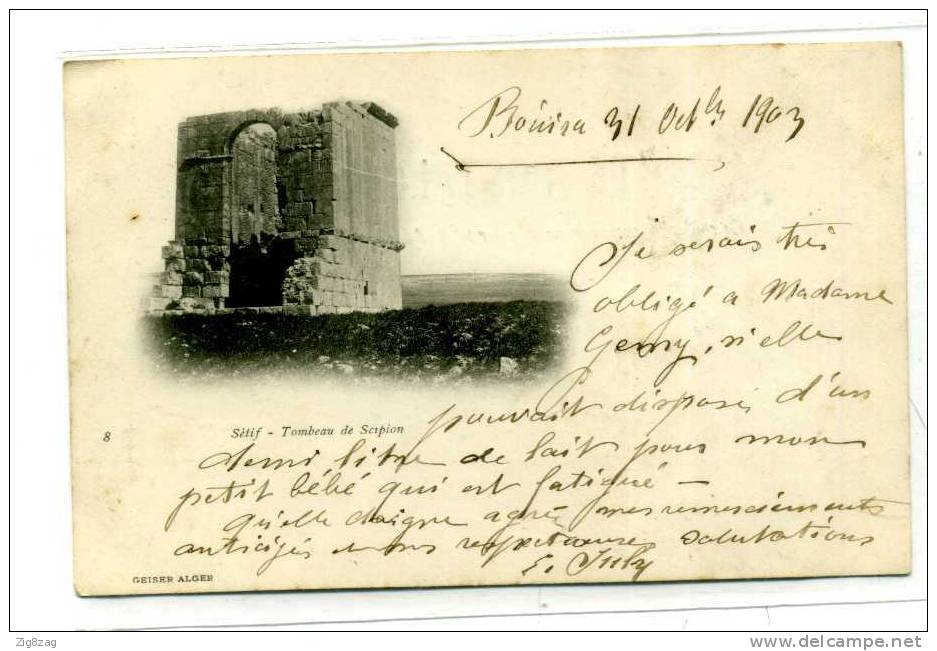 Bouira 31 Oct 1903
Je serais très
obligé a Madame
Gemy, si elle
pouvait disposer d'un
demi litre de lait pour mon
petit bébé qui est fatigué —
Qu'elle daigne agréer mes remerciements
anticipés et mes respectueuses salutations
8
Sétif - Tombeau de Scipion
GEISER ALGER
Zig8zag
www.delcampe.net